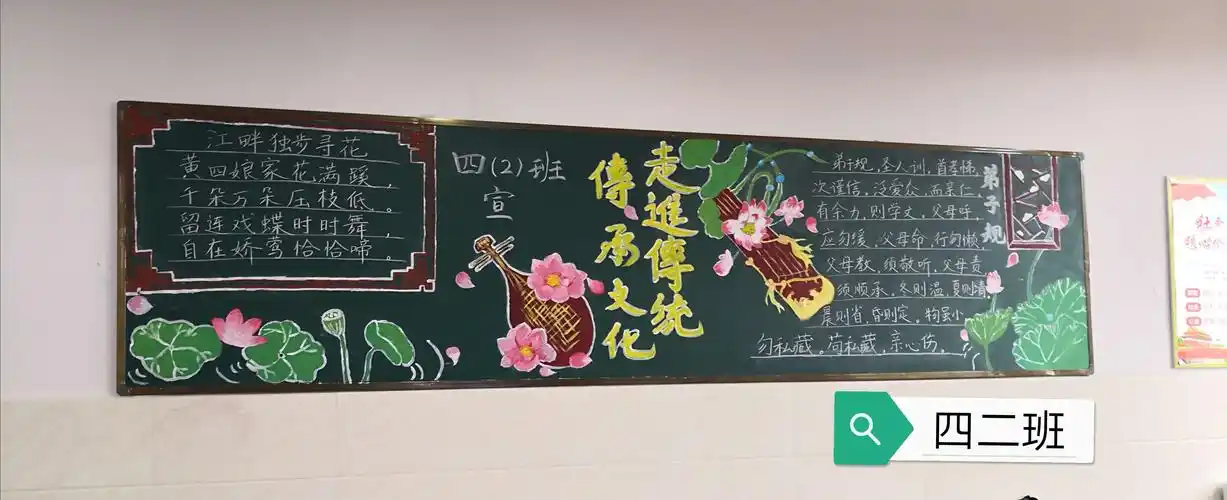 江畔独步寻花
黄四娘家花满蹊，
千朵万朵压枝低。
留连戏蝶时时舞，
自在娇莺恰恰啼。
四(2)班
宣
走進傳統
傳承文化
弟子规
弟子规，圣人训，首孝悌，
次谨信，泛爱众，而亲仁，
有余力，则学文，父母呼，
应勿缓，父母命，行勿懒
父母教，须敬听，父母责
须顺承，冬则温，夏则凊
晨则省，昏则定，物虽小
勿私藏。苟私藏，亲心伤。
四二班